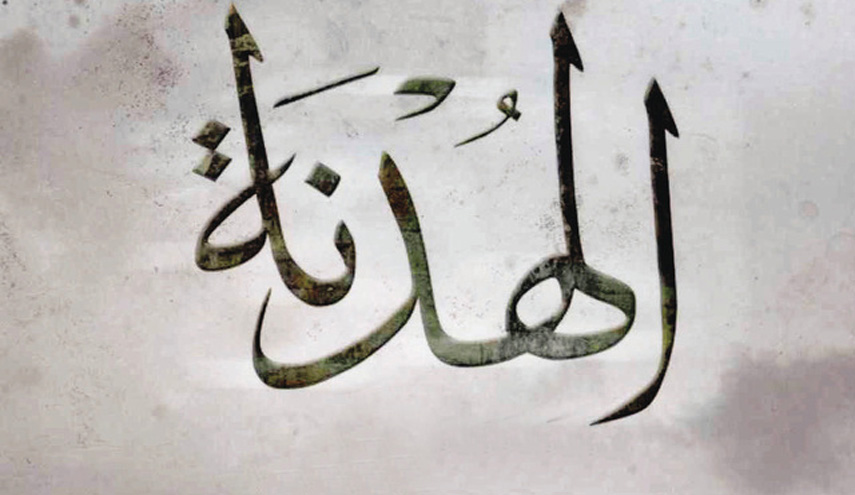 الهُدنَة